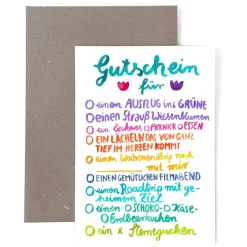 Gutschein
für
einem AUSFLUG ins GRÜNE
einen Strauß Wiesenblumen
ein leckeres PICKNICK ESSEN
EIN LÄCHELN DAS VON GANZ
TIEF IM HERZEN KOMMT
einen Wochenendtag nach
mit mir
EINEN GEMÜTLICHEN FILMABEND
einen Roadtrip mit ge-
heimem Ziel
einen SCHOKO- Käse-
Erdbeerkuchen
ein x Sternegucken